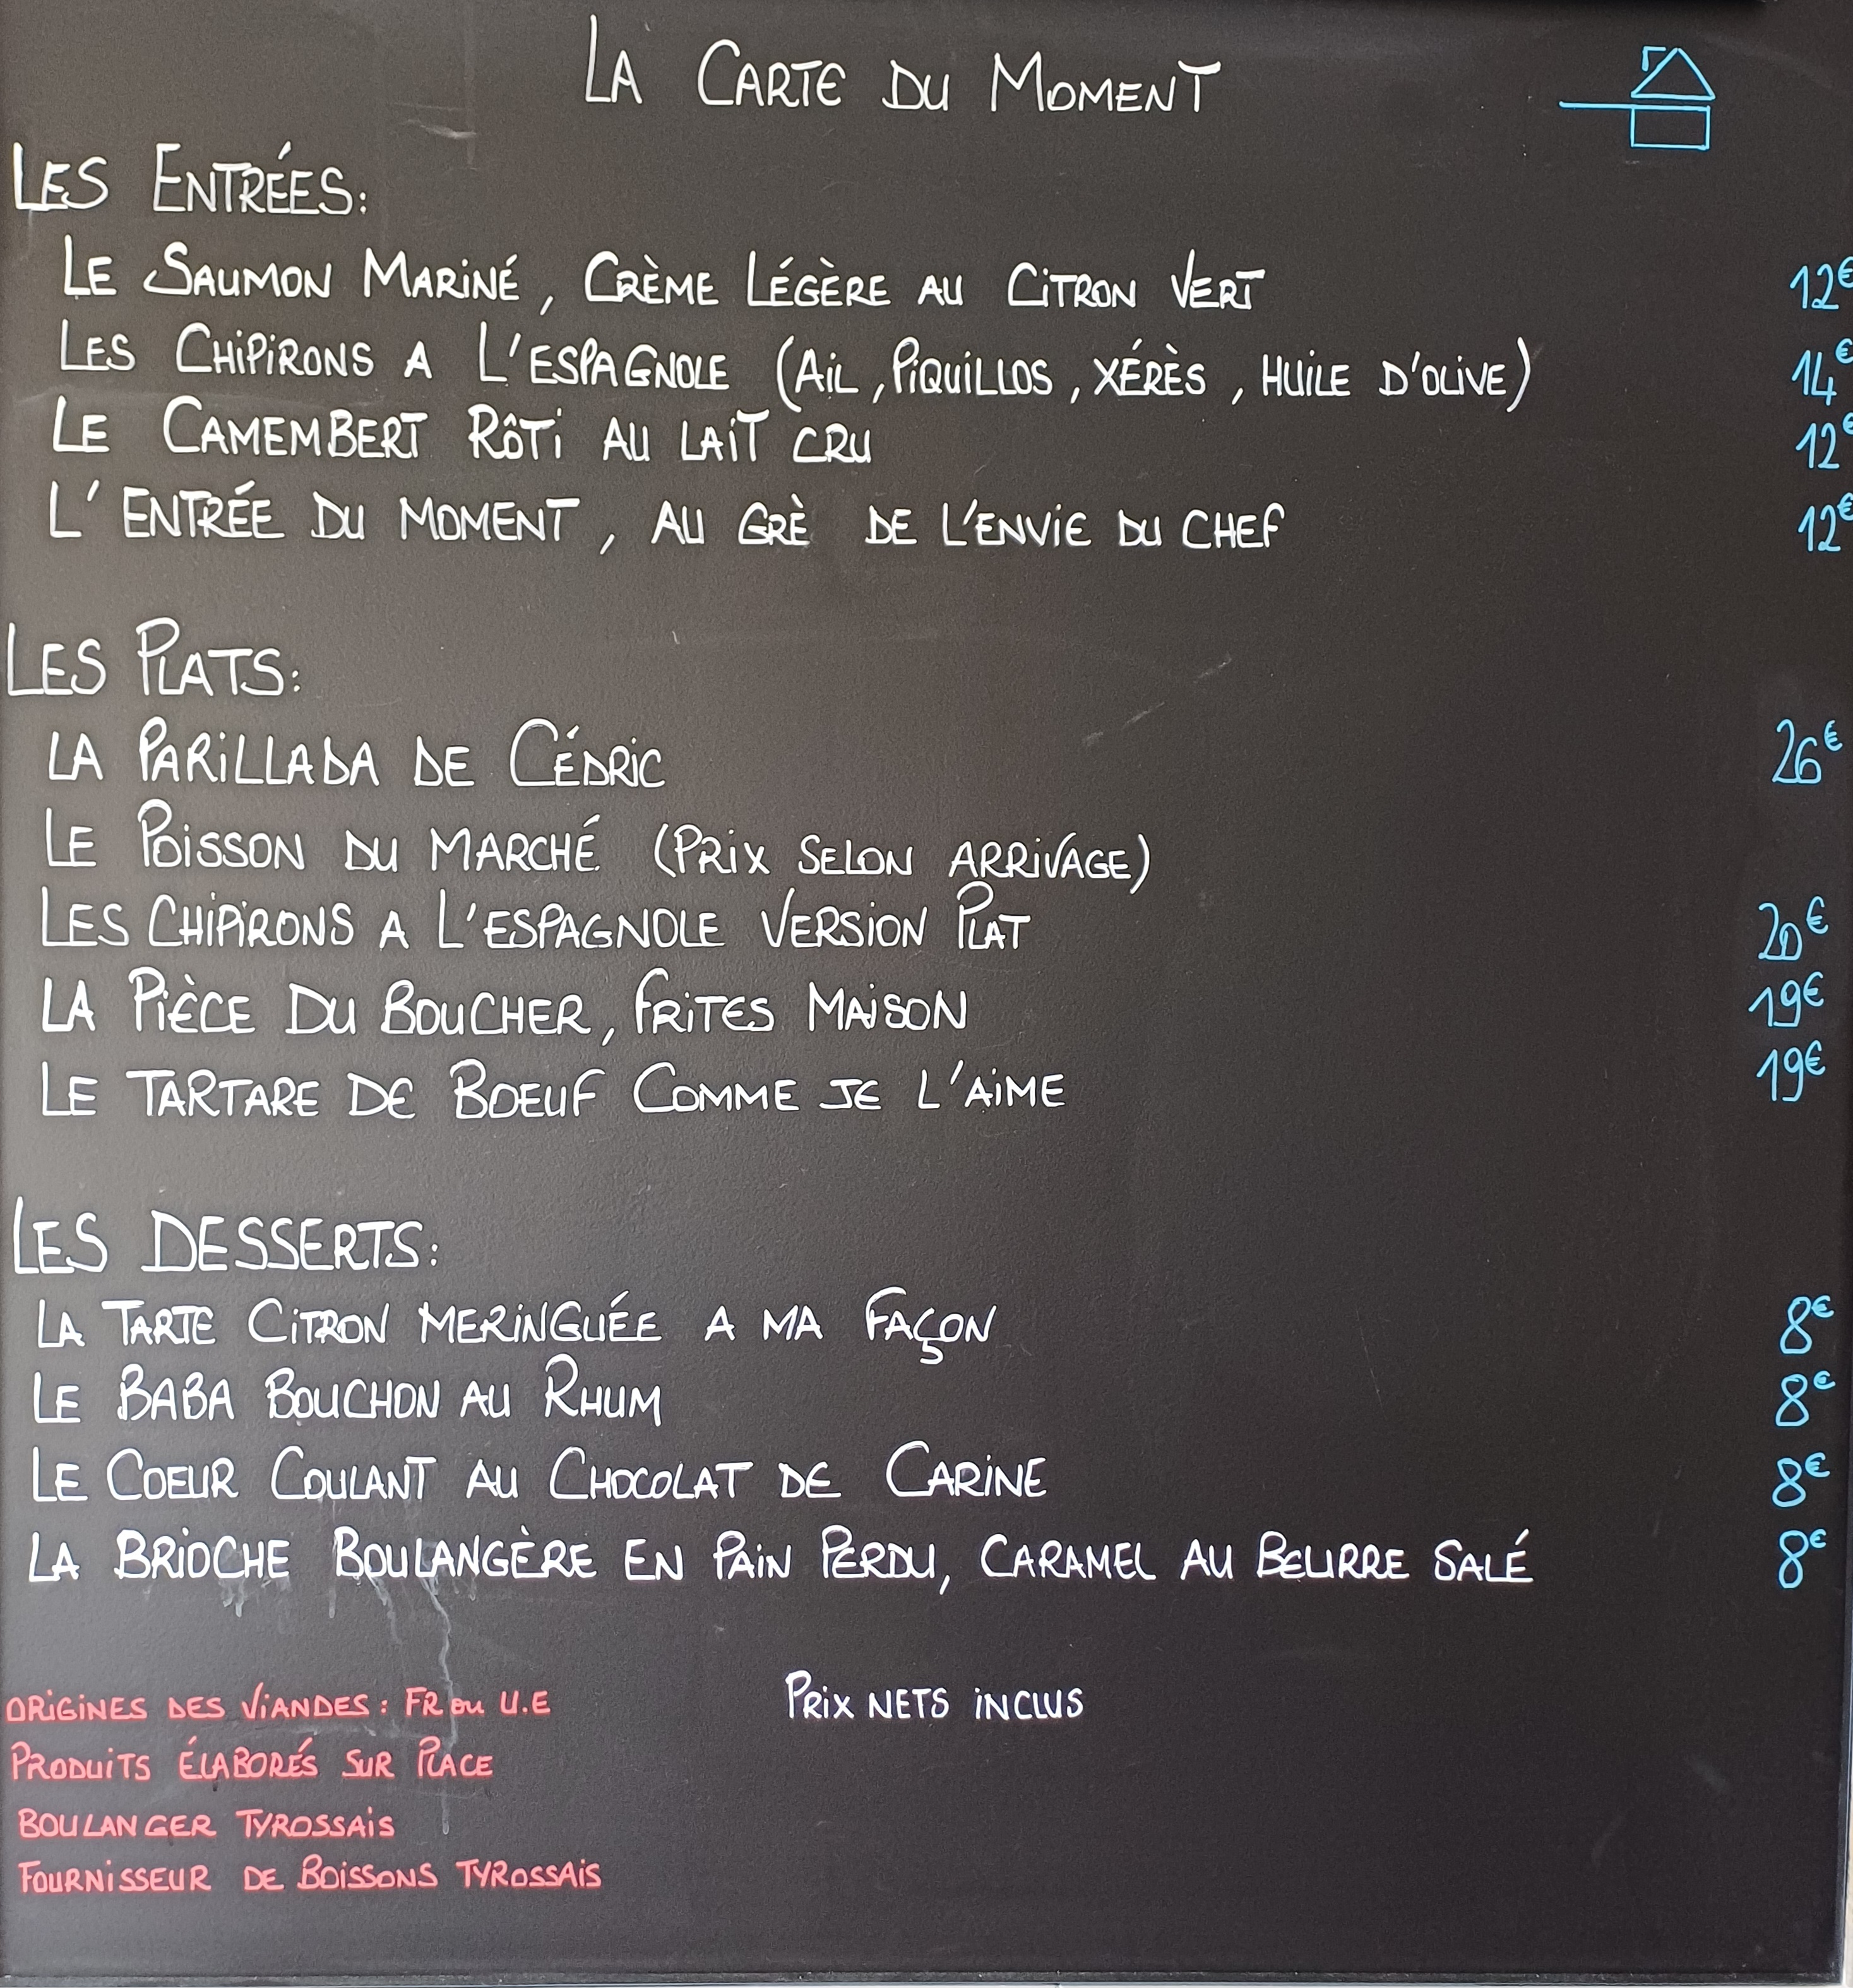 LA CARTE DU MOMENT
LES ENTRÉES:
LE SAUMON MARINÉ, CRÈME LÉGÈRE AU CITRON VERT 12€
LES CHIPIRONS A L'ESPAGNOLE (AIL, PIQUILLOS, XÉRÈS, HUILE D'OLIVE) 14€
LE CAMEMBERT RÔTI AU LAIT CRU 12€
L'ENTRÉE DU MOMENT, AU GRÈ DE L'ENVIE DU CHEF 12€
LES PLATS:
LA PARILLADA DE CÉDRIC 26€
LE POISSON DU MARCHÉ (PRIX SELON ARRIVAGE)
LES CHIPIRONS A L'ESPAGNOLE VERSION PLAT 20€
LA PIÈCE DU BOUCHER, FRITES MAISON 19€
LE TARTARE DE BOEUF COMME JE L'AIME 19€
LES DESSERTS:
LA TARTE CITRON MERINGUÉE A MA FAÇON 8€
LE BABA BOUCHON AU RHUM 8€
LE COEUR COULANT AU CHOCOLAT DE CARINE 8€
LA BRIOCHE BOULANGÈRE EN PAIN PERDU, CARAMEL AU BEURRE SALÉ 8€
ORIGINES DES VIANDES: FR ou U.E
PRIX NETS INCLUS
PRODUITS ÉLABORÉS SUR PLACE
BOULANGER TYROSSAIS
FOURNISSEUR DE BOISSONS TYROSSAIS